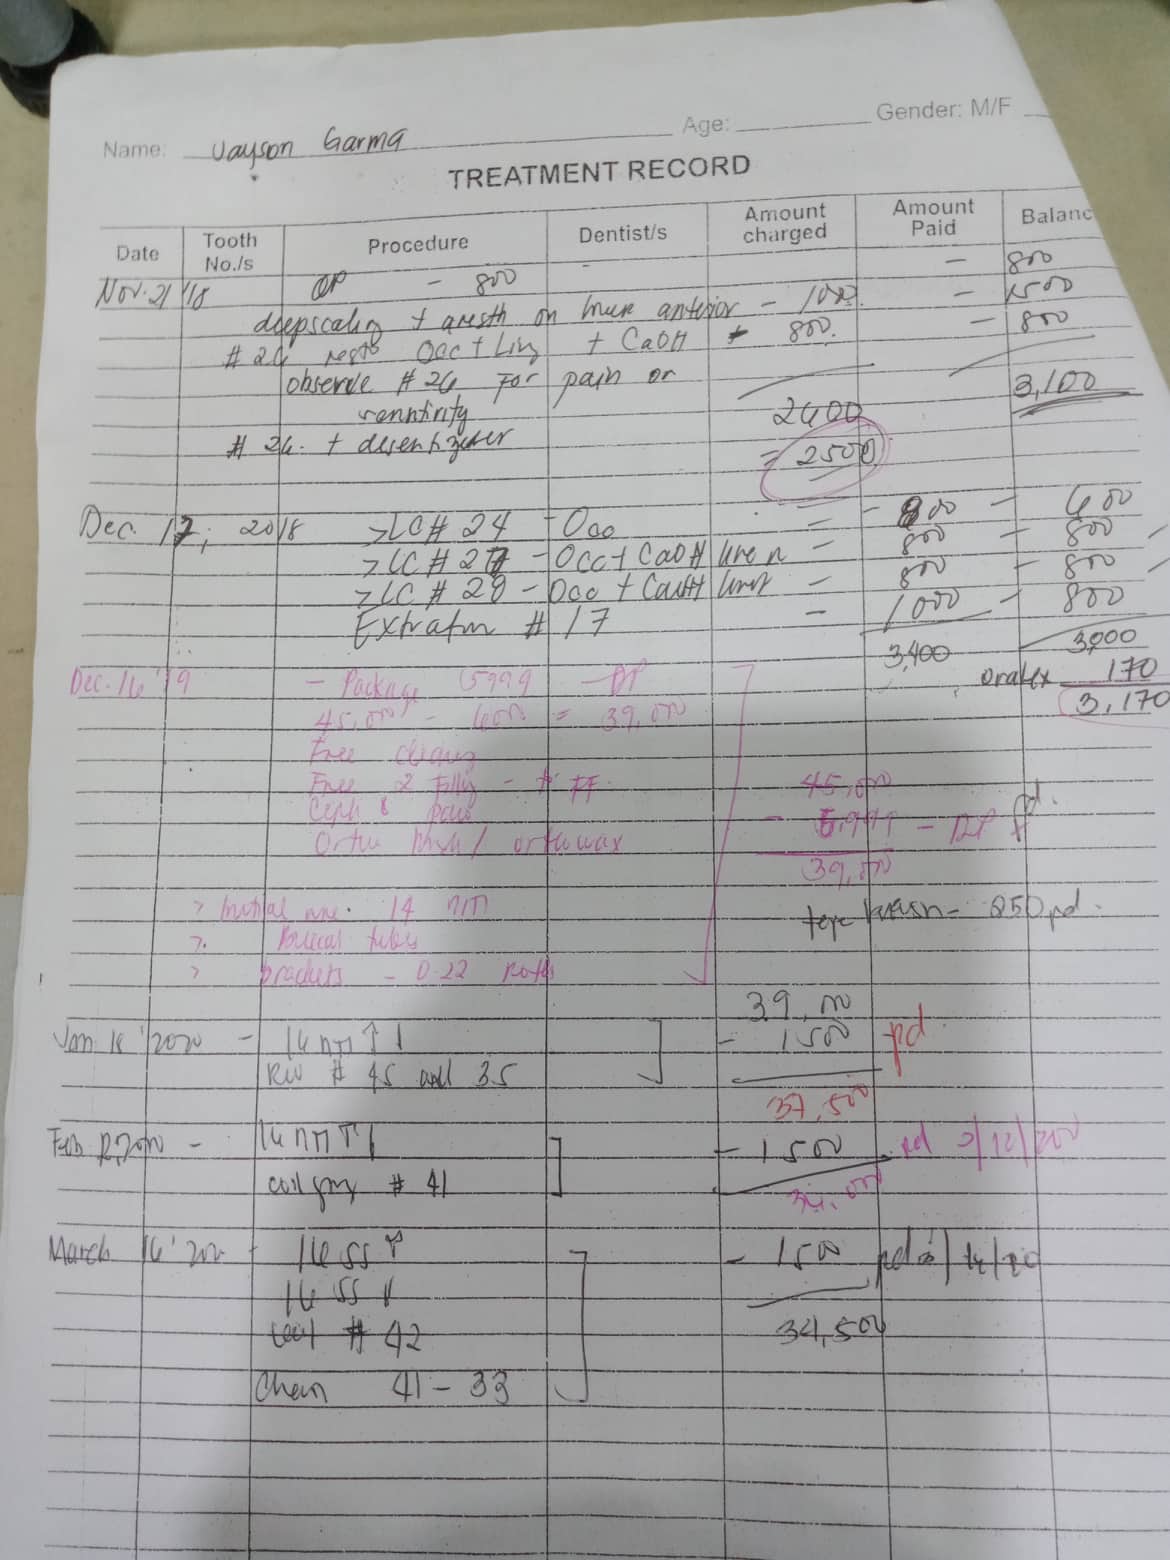 Name: Jayson Garma Age: Gender: M/F
TREATMENT RECORD
Date Tooth No./s Procedure Dentist/s Amount charged Amount Paid Balanc
Nov. 21 '18 OP - 800 - 800
deepscaling + anesth on lower anterior - 1000 - 1500
# 26 resto Occ + Ling + CaOH 800. - 800
observe # 26 for pain or 3,100
2600
# 26. + = 2500
Dec. 17, 2018 > LC # 24 - Occ = 800 - 600
> LC # 27 - Occ + CaOH liner = 800 - 800
> LC # 28 - Occ + CaOH liner = 800 - 800
Extratn # 17 - 1000 - 800
3,400 3,000
170
3,170
Dec. 16 '19 - Package 5999 - DP
45,000 - 6000 = 39,000
Free
Free 2 - FF
Ceph & pano 45,000
Ortho / orthowax - 5,999 - DP pd.
39,000
> Initial 14 niti
wash - 250 pd.
> Buccal tubes
> brackets - 0.22 Roth
39,000
Jan 18 '2020 - 16 niti ↑ ↓ - 1500 pd
# 45 and 35
37,500
Feb 12, 2020 - 16 niti ↑ ↓ - 1500 pd 2/12/200
coil # 41
36,000
March 16 '200 - 16 ss ↑ - 1500 pd
16 ss ↓
# 42 34,500
Chain 41 - 33